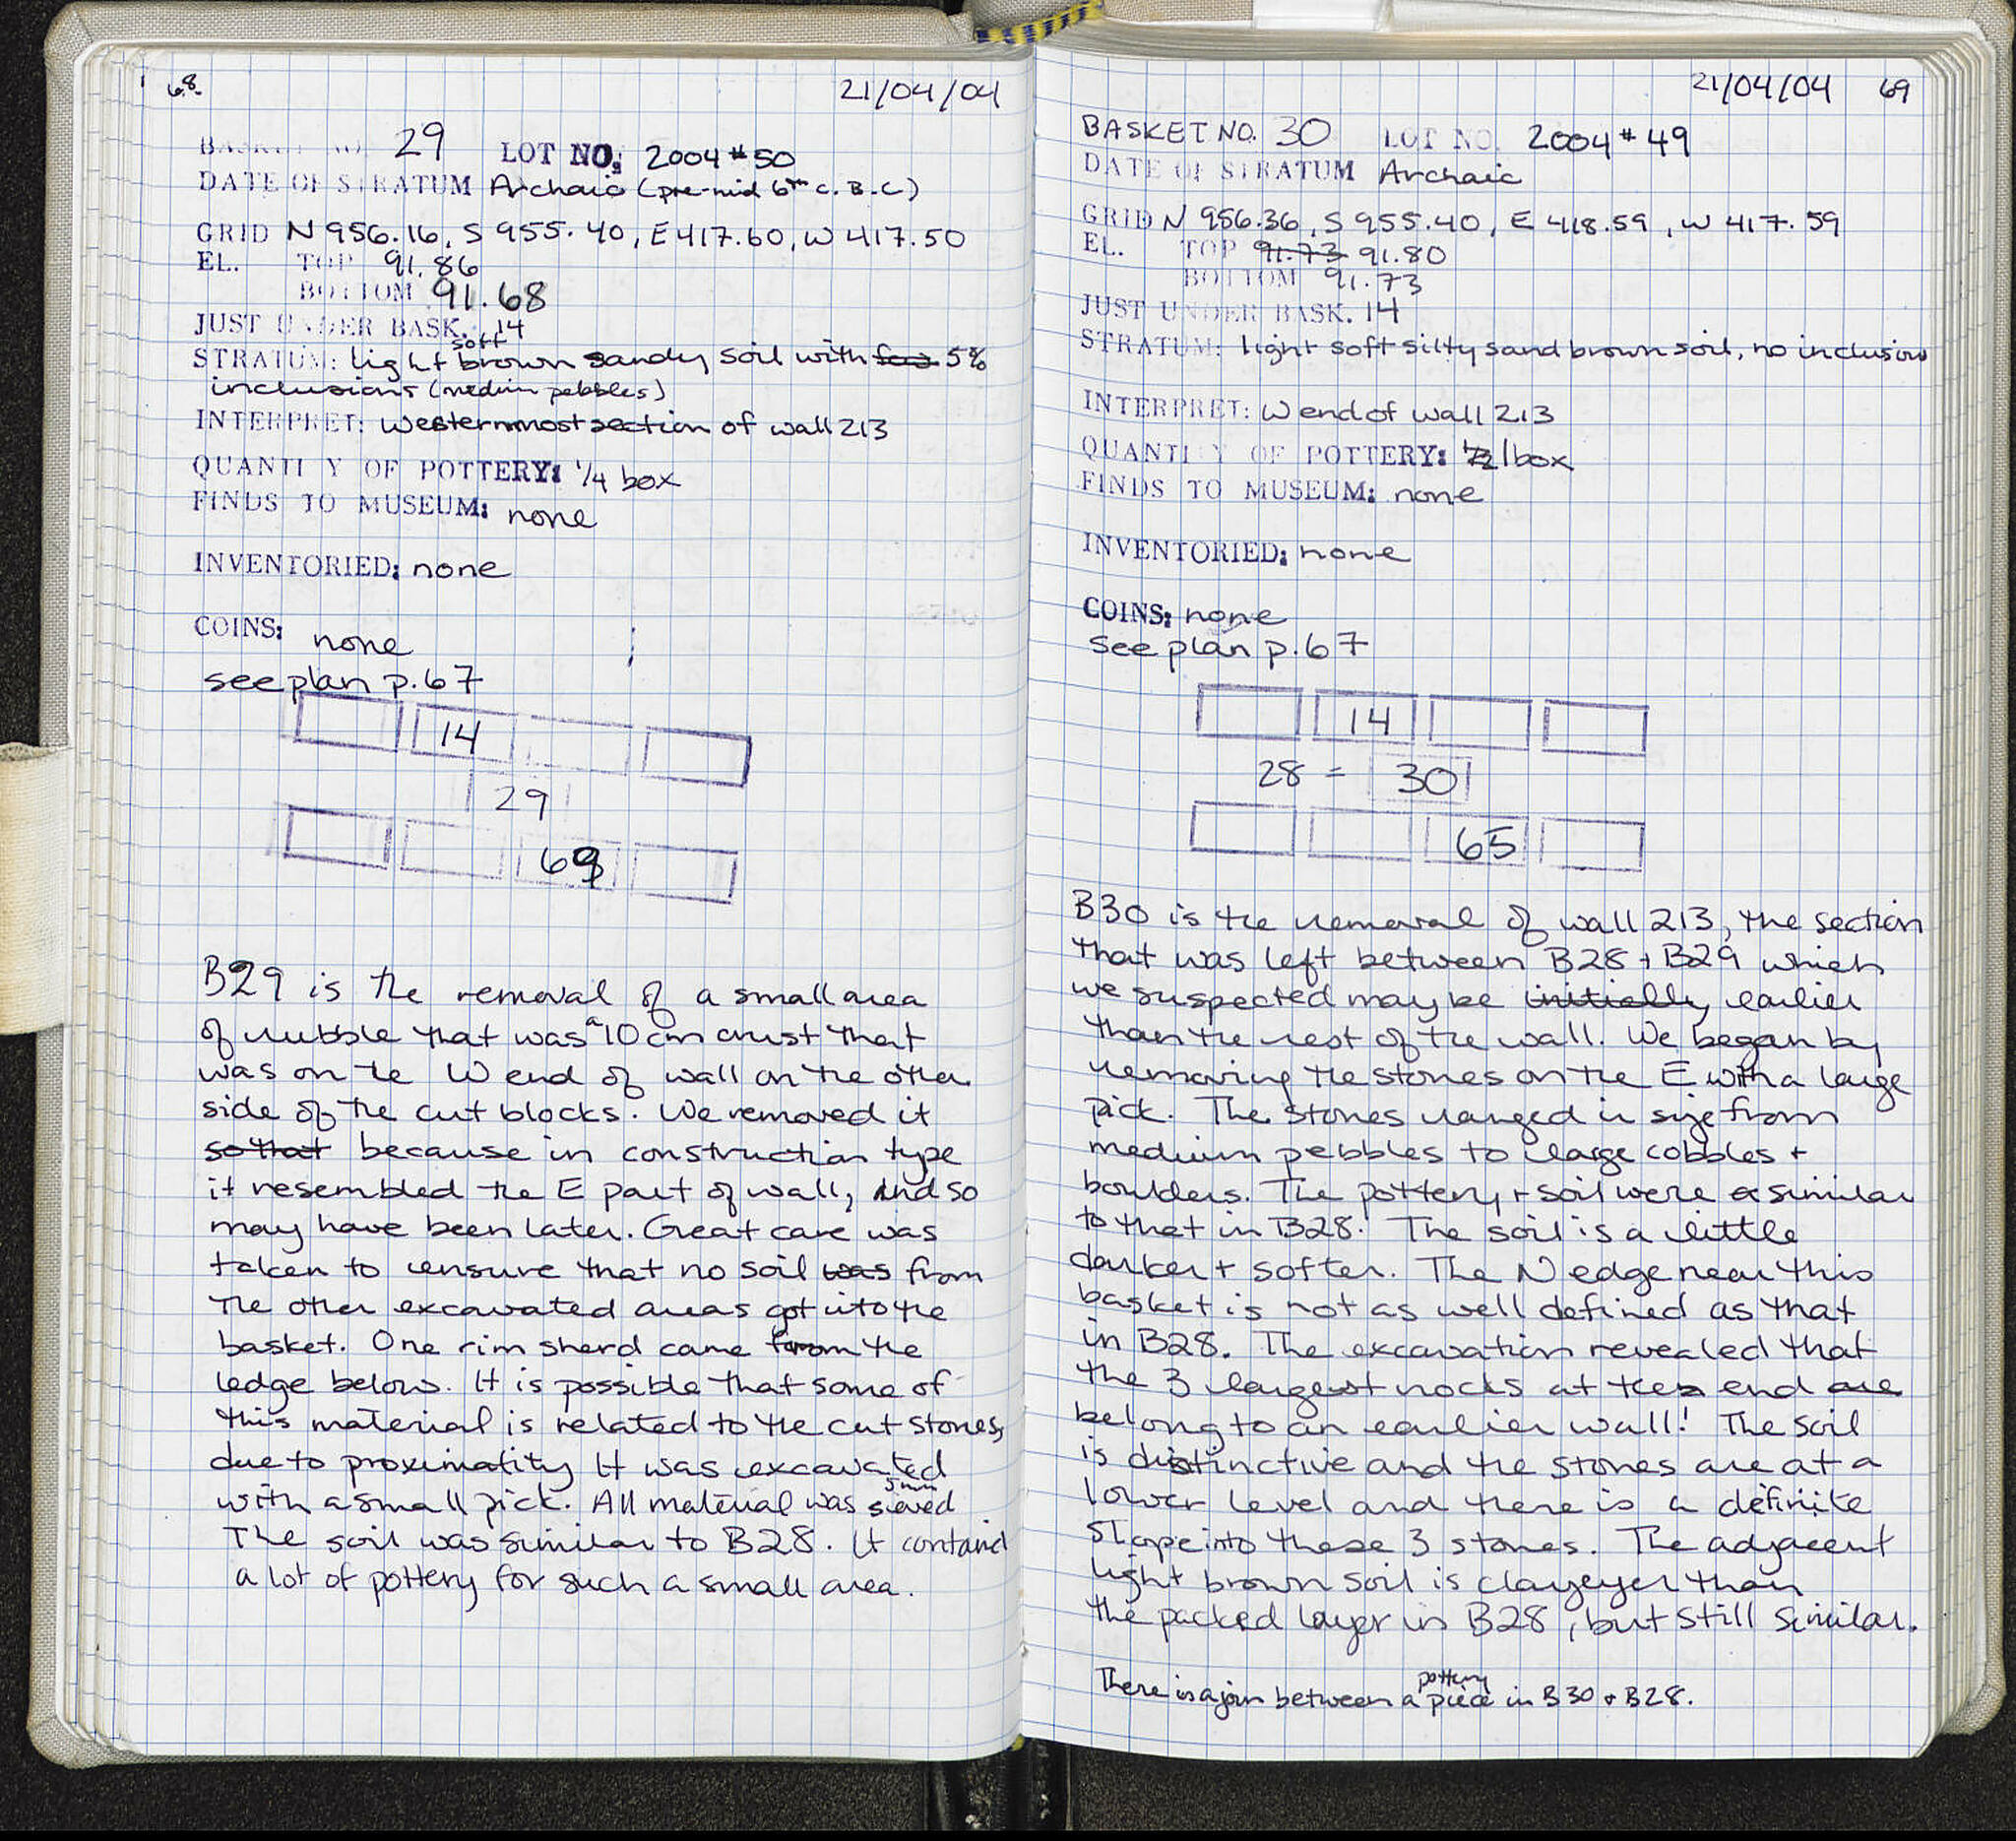 68
21/04/04
BASKET NO. 29 LOT NO. 2004 #50
DATE OF STRATUM Archaic (pre-mid 6th c. B.C)
GRID N 956.16, S 955.40, E 417.60, W 417.50
EL. TOP 91.86
BOTTOM 91.68
JUST UNDER BASK. 14
STRATUM: light soft brown sandy soil with few 5%
inclusions (medium pebbles)
INTERPRET: westernmost section of wall 213
QUANTITY OF POTTERY: 1/4 box
FINDS TO MUSEUM: none
INVENTORIED: none
COINS: none
see plan p.67
14
29
69
B29 is the removal of a small area
of rubble that was a 10 cm crust that
was on te W end of wall on the other
side of the cut blocks. We removed it
so that because in construction type
it resembled the E part of wall, and so
may have been later. Great care was
taken to ensure that no soil was from
the other excavated areas got into the
basket. One rim sherd came from the
ledge below. It is possible that some of
this material is related to the cut stones,
due to proximatity It was excavated
with a small pick. All material was 5mm sieved
The soil was similar to B28. It containd
a lot of pottery for such a small area.
21/04/04 69
BASKET NO. 30 LOT NO. 2004 #49
DATE OF STRATUM Archaic
GRID N 956.36, S 955.40, E 418.59, W 417.59
EL. TOP 91.73 91.80
BOTTOM 91.73
JUST UNDER BASK. 14
STRATUM: light soft silty sand brown soil, no inclusions
INTERPRET: W end of wall 213
QUANTITY OF POTTERY: 1/2 1 box
FINDS TO MUSEUM: none
INVENTORIED: none
COINS: none
see plan p.67
14
28 = 30
65
B30 is the removal of wall 213, the section
that was left between B28 + B29 which
we suspected may be initially earlier
than the rest of the wall. We began by
removing the stones on the E with a large
pick. The stones ranged in size from
medium pebbles to large cobbles +
boulders. The pottery + soil were similar
to that in B28. The soil is a little
darker + softer. The N edge near this
basket is not as well defined as that
in B28. The excavation revealed that
the 3 largest rocks at the end are
belong to an earlier wall! The soil
is distinctive and the stones are at a
lower level and there is a definite
slope into these 3 stones. The adjacent
light brown soil is clayeyer than
the packed layer in B28, but still similar.
There is a join between a pottery piece in B30 + B28.